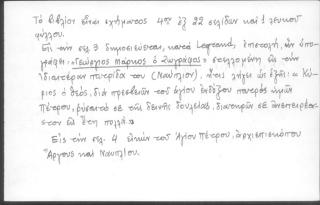 Τὸ βιβλίον εἶναι σχήματος 4ον ἐξ 22 σελίδων καὶ 1 λευκοῦ
φύλλου.
Εἰς τὴν σελ. 3 δημοσιεύεται, κατὰ Legrand, ἐπιστολή, ἣν ὑπο-
γράφει «Γεώργιος Μάρκος ὁ ζωγράφος» στελλομένη εἰς τὴν
ἰδιαιτέραν πατρίδα του (Ναύπλιον), ἥτις λήγει ὡς ἑξῆς: « Κύ-
ριος ὁ Θεός, διὰ πρεσβειῶν τοῦ ἁγίου ἐνδόξου πατρὸς ἡμῶν
Πέτρου, ῥύσαιτό σε τῆς δεινῆς δουλείας, διατηρῶν σε ἀνεπηρέασ-
τον εἰς ἔτη πολλά.»
Εἰς τὴν σελ. 4 εἰκὼν τοῦ Ἁγίου Πέτρου, ἀρχιεπισκόπου
Ἄργους καὶ Ναυπλίου.